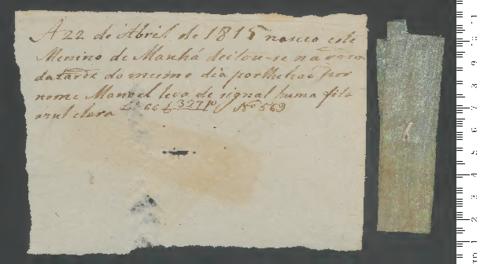 A 22 de Abril de 1815 nasceo este
Menino de Manhá deitou-se na roda
da tarde do mesmo dia por
nome Manoel leva de signal huma fita
azul clara Lº 66 f 327 Nº 569